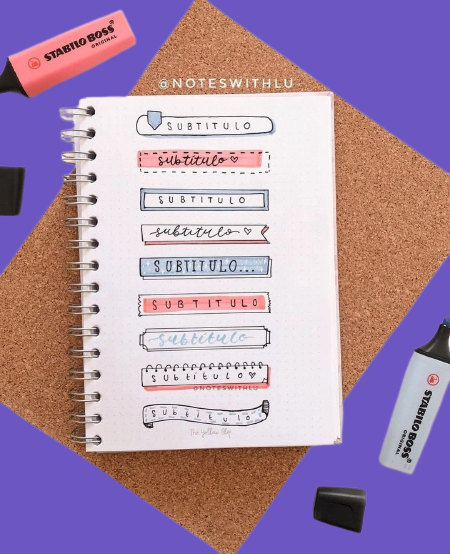 STABILO BOSS
ORIGINAL
@NOTESWITHLU
SUBTITULO
subtitulo
SUBTITULO
subtitulo
SUBTITULO...
SUBTITULO
subtitulo
subtitulo
@NOTESWITHLU
subtitulo
The yellow
STABILO BOSS
ORIGINAL